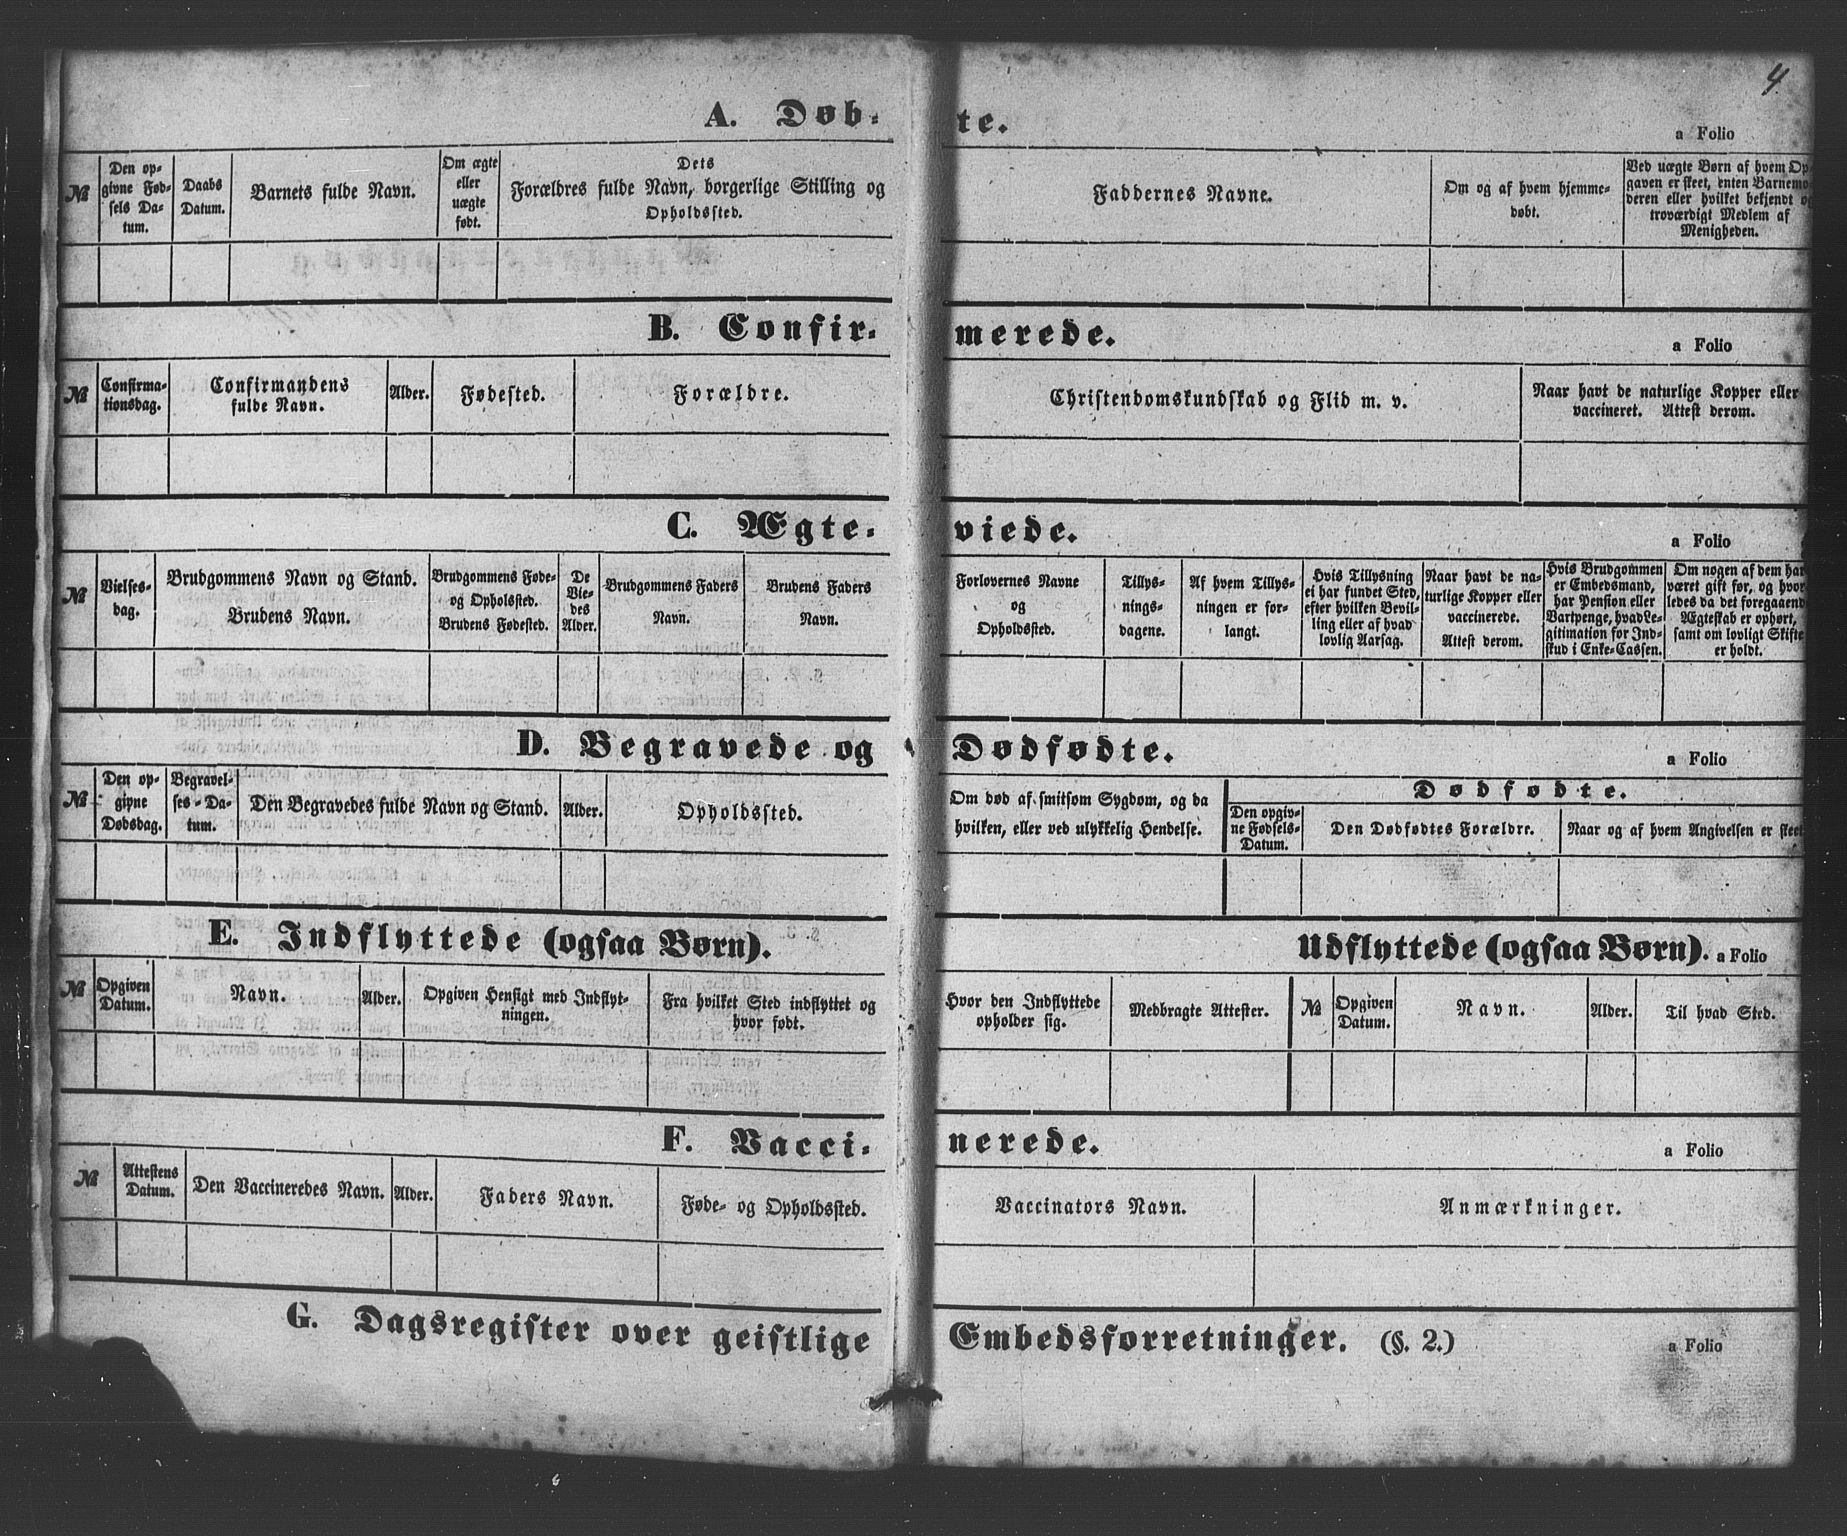 4.
A. Døb-te.
a Folio
№ | Den op-givne Fød-sels Da-tum. | Daabs Datum. | Barnets fulde Navn. | Om ægte eller uægte født. | Dets Forældres fulde Navn, borgerlige Stilling og Opholdssted. | Faddernes Navne. | Om og af hvem hjemme-døbt. | Ved uægte Børn af hvem Op-gaven er skeet, enten Barnemo-deren eller hvilket bekjendt og troværdigt Medlem af Menigheden.
B. Confir-merede.
a Folio
№ | Confirma-tionsdag. | Confirmandens fulde Navn. | Alder. | Fødested. | Forældre. | Christendomskundskab og Flid m. v. | Naar havt de naturlige Kopper eller vaccineret. Attest derom.
C. Ægte-viede.
a Folio
№ | Vielses-dag. | Brudgommens Navn og Stand. Brudens Navn. | Brudgommens Føde- og Opholsted. Brudens Fødested. | De Vie-des Alder. | Brudgommens Faders Navn. | Brudens Faders Navn. | Forlovernes Navne og Opholdssted. | Tillys-nings-dagene. | Af hvem Tillys-ningen er for-langt. | Hvis Tillysning ei har fundet Sted, efter hvilken Bevil-ling eller af hvad lovlig Aarsag. | Naar havt de na-turlige Kopper eller vaccinerede. Attest derom. | Hvis Brudgommen er Embedsmand, har Pension eller Vartpenge, hvad Le-gitimation for Ind-skud i Enke-Cassen. | Om nogen af dem har været gift før, og hvor-ledes da det foregaaende Ægteskab er ophørt, samt om lovligt Skifte er holdt.
D. Begravede og Dødfødte.
a Folio
№ | Den op-givne Dødsdag. | Begravel-ses-Da-tum. | Den Begravedes fulde Navn og Stand. | Alder. | Opholdssted. | Om død af smitsom Sygdom, og da hvilken, eller ved ulykkelig Hendelse. | Dødfødte. | Den opgiv-ne Fødsels-Datum. | Den Dødfødtes Forældre. | Naar og af hvem Angivelsen er skeet
E. Indflyttede (ogsaa Børn).
Udflyttede (ogsaa Børn). a Folio
№ | Opgiven Datum. | Navn. | Alder. | Opgiven Hensigt med Indflyt-ningen. | Fra hvilket Sted indflyttet og hvor født. | Hvor den Indflyttede opholder sig. | Medbragte Attester. | № | Opgiven Datum. | Navn. | Alder. | Til hvad Sted.
F. Vacci-nerede.
a Folio
№ | Attestens Datum. | Den Vaccineredes Navn. | Alder. | Faders Navn. | Føde- og Opholdssted. | Vaccinators Navn. | Anmærkninger.
G. Dagsregister over geistlige Embedsforretninger. (§. 2.)
a Folio